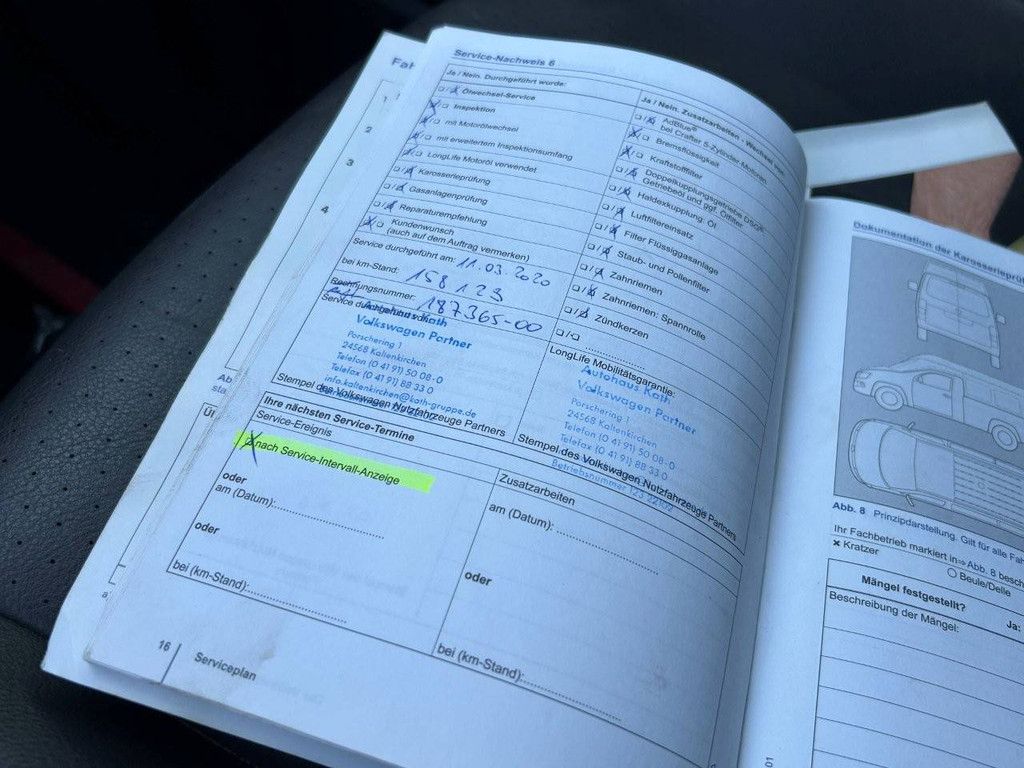 Fah
1
2
3
4
Service-Nachweis 6
Ja / Nein. Durchgeführt wurde:
Ölwechsel-Service
Inspektion
mit Motorölwechsel
mit erweitertem Inspektionsumfang
LongLife Motoröl verwendet
Karosserieprüfung
Gasanlagenprüfung
Reparaturempfehlung
Kundenwunsch
(auch auf dem Auftrag vermerken)
Service durchgeführt am: 11.03.2020
bei km-Stand: 158 123
Rechnungsnummer: 187365-00
Service durchgeführt von:
Autohaus Kath
Volkswagen Partner
Porschering 1
24568 Kaltenkirchen
Telefon (0 41 91) 50 08-0
Telefax (0 41 91) 88 33 0
info.kaltenkirchen@kath-gruppe.de
Stempel des Volkswagen Nutzfahrzeuge Partners
Ja / Nein. Zusatzarbeiten - Wechsel von:
AdBlue®
bei Crafter 5-Zylinder Motoren
Bremsflüssigkeit
Kraftstofffilter
Doppelkupplungsgetriebe DSG®:
Getriebeöl und ggf. Ölfilter
Haldexkupplung: Öl
Luftfiltereinsatz
Filter Flüssiggasanlage
Staub- und Pollenfilter
Zahnriemen
Zahnriemen: Spannrolle
Zündkerzen
LongLife Mobilitätsgarantie:
Autohaus Kath
Volkswagen Partner
Porschering 1
24568 Kaltenkirchen
Telefon (0 41 91) 50 08-0
Telefax (0 41 91) 88 33 0
Stempel des Volkswagen Nutzfahrzeuge Partners
Betriebsnummer 123 22102
Ihre nächsten Service-Termine
Service-Ereignis
nach Service-Intervall-Anzeige
oder
am (Datum):
oder
bei (km-Stand):
Zusatzarbeiten
am (Datum):
oder
bei (km-Stand):
16
Serviceplan
Dokumentation der Karosserieprü
Abb. 8 Prinzipdarstellung. Gilt für alle Fah
Ihr Fachbetrieb markiert in ⇒ Abb. 8 besch
x Kratzer
Beule/Delle
Mängel festgestellt?
Ja:
Beschreibung der Mängel: